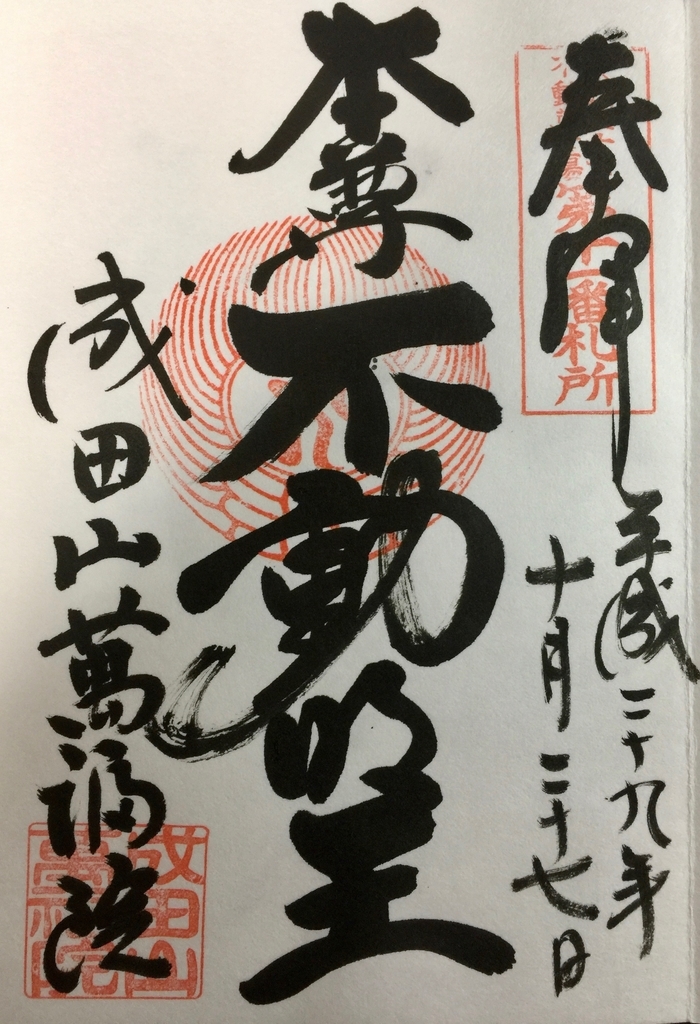 奉拝
第十一番札所
平成二十九年
十月二十七日
本尊不動明王
成田山萬福院
成田山
萬福院